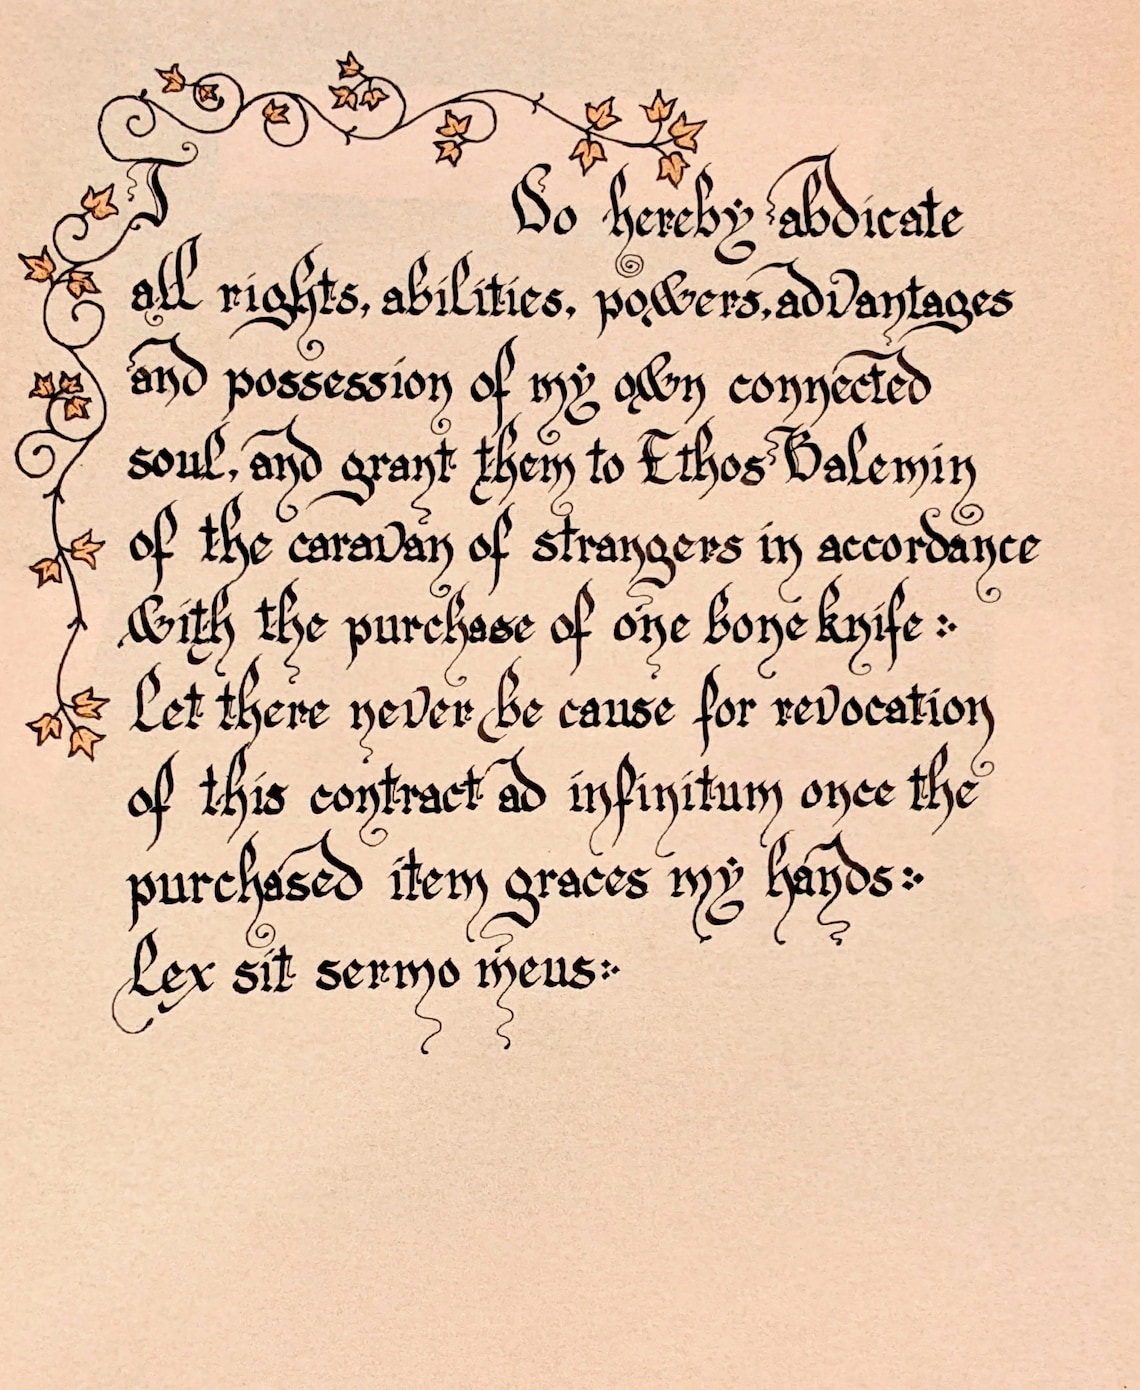 I Do hereby abdicate
all rights, abilities, powers, advantages
and possession of my own connected
soul, and grant them to Ethos Balemin
of the caravan of strangers in accordance
with the purchase of one bone knife :·
Let there never be cause for revocation
of this contract ad infinitum once the
purchased item graces my hands :·
Lex sit sermo meus :·